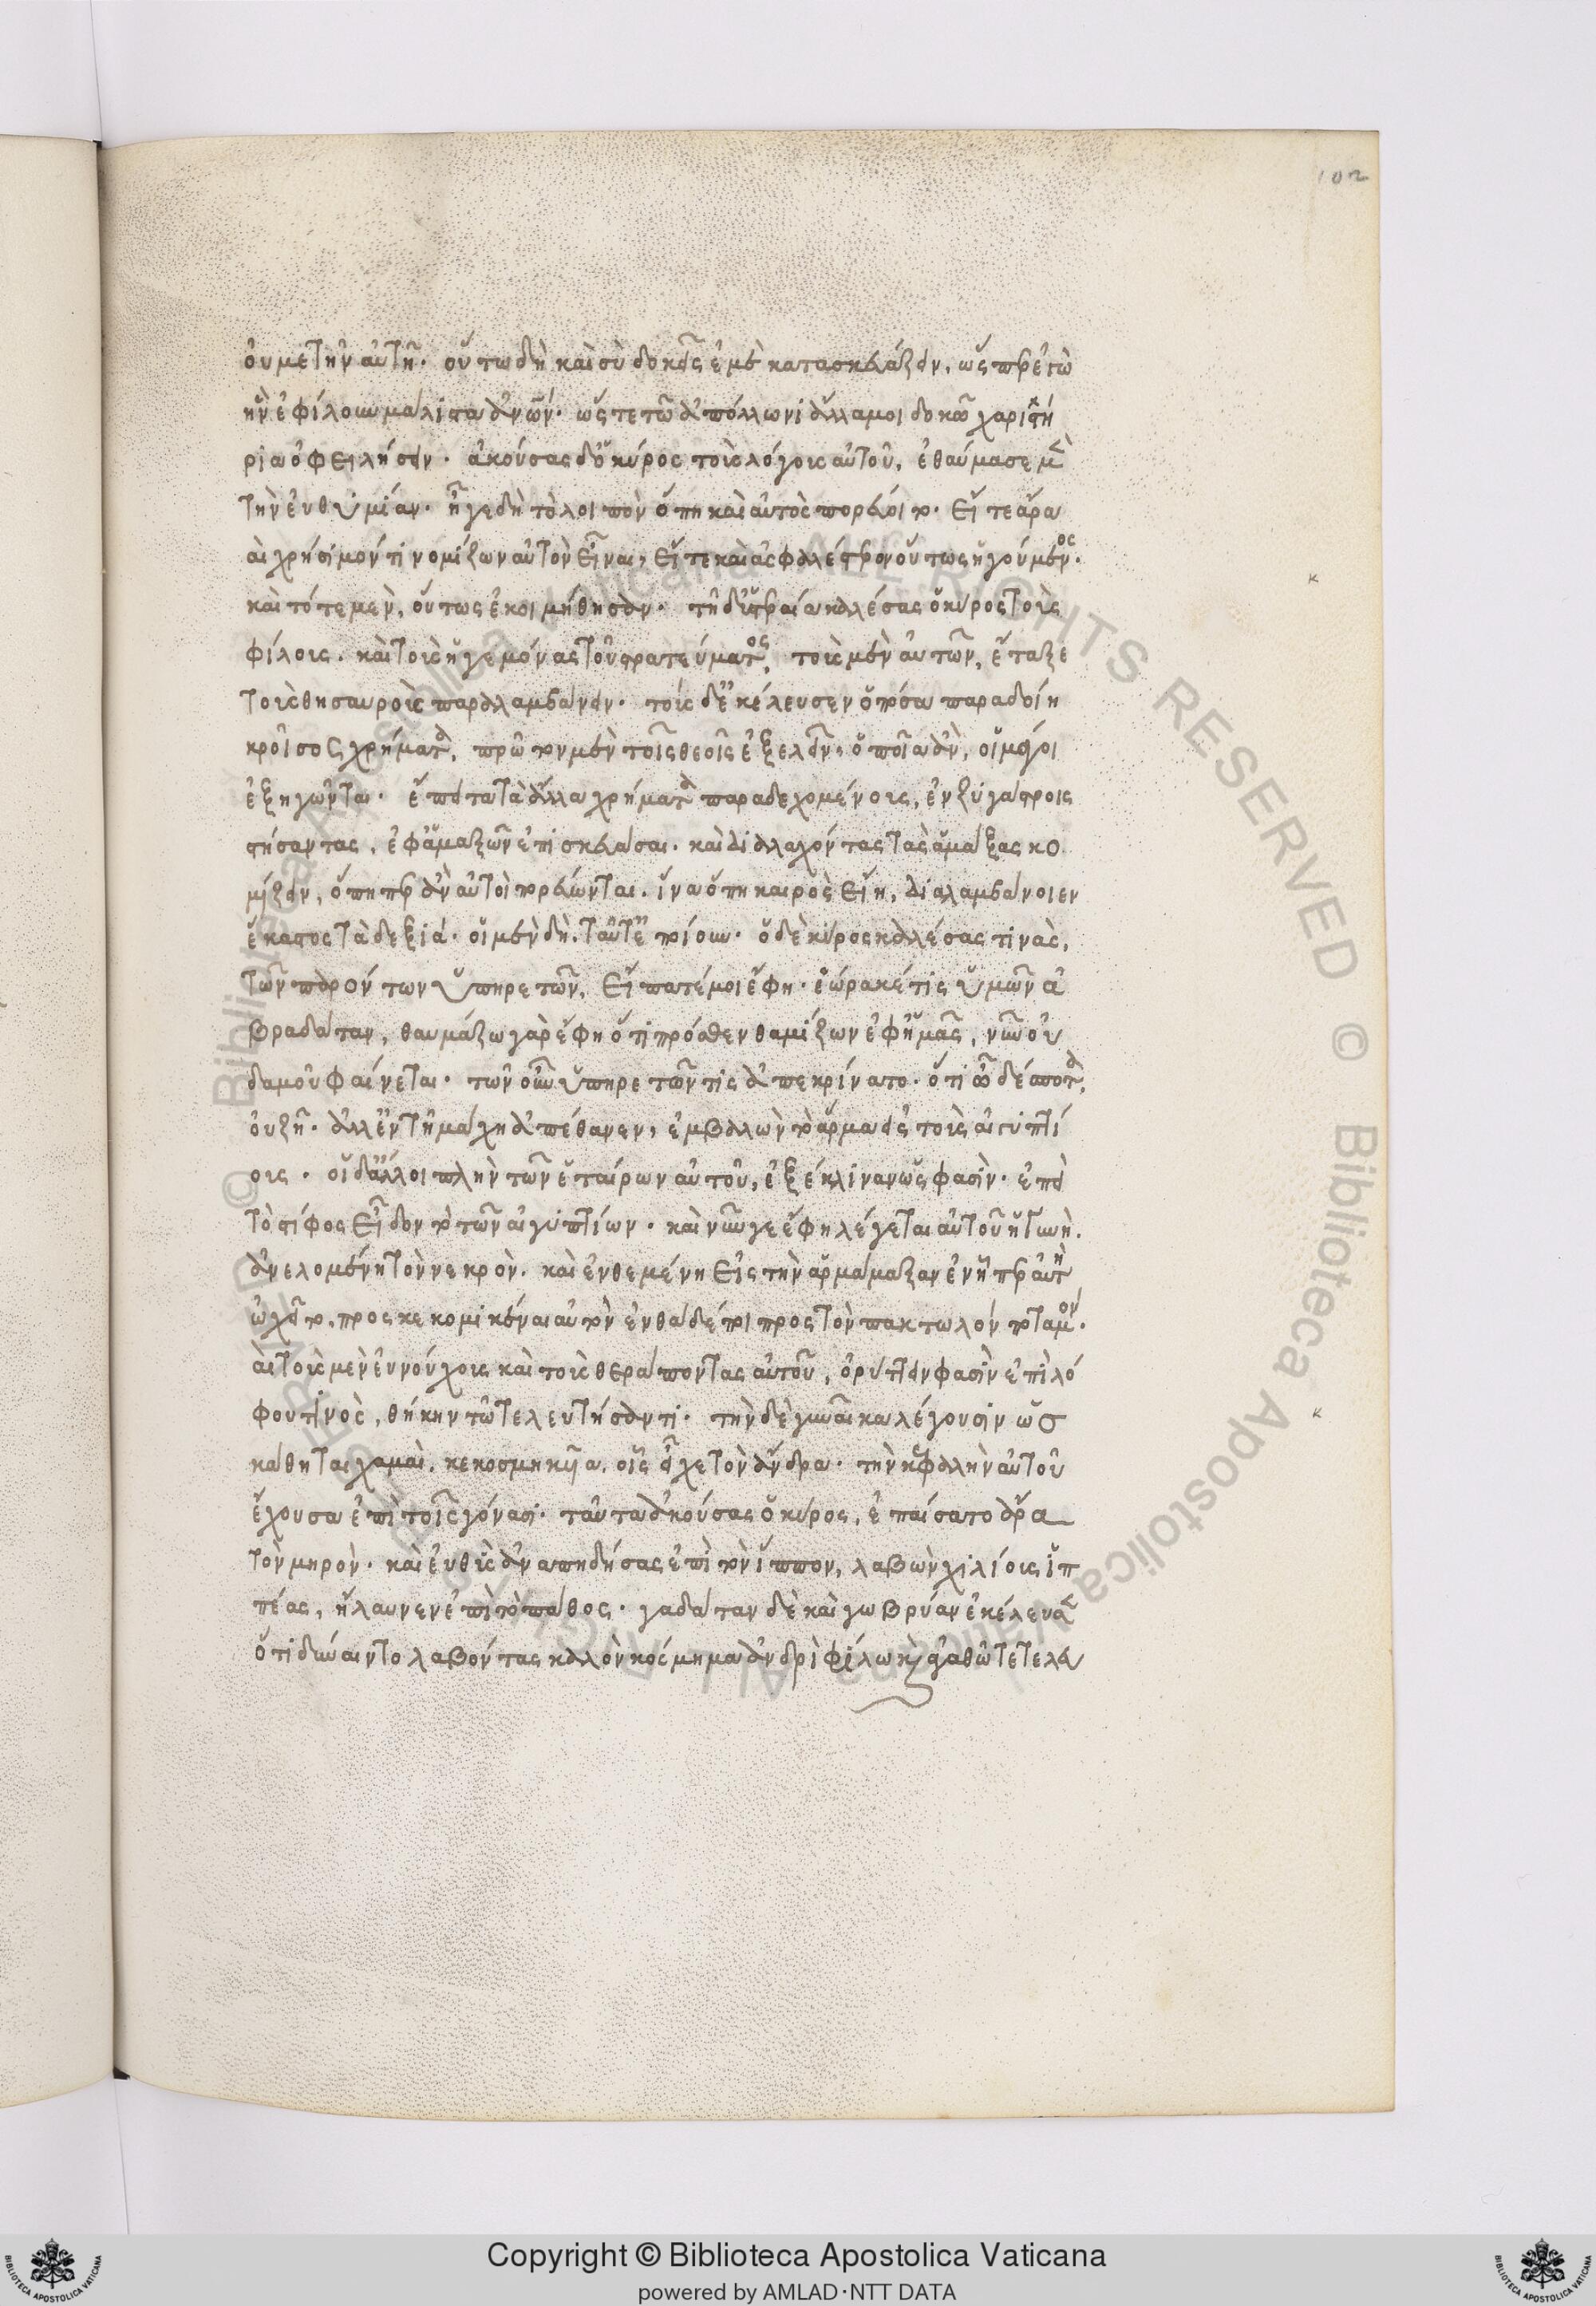 102
οὐ μετῆν αὐτῆ. οὕτω δὴ καὶ σὺ δοκεῖς ἐμὲ κατασκευάζειν, ὥσπερ ἐγὼ
ἣν ἐφίλουν μάλιστα ἀνων. ὥστε τῶ ἀπόλλωνι ἄλλα μοι δοκῶ χαριστή
ρια ὀφειλήσειν. ἀκούσας δ' ὁ κύρος τοὺς λόγους αὐτοῦ, ἐθαύμασε μὲν
τὴν ἐυθυμίαν. ἦγε δὴ τὸ λοιπὸν ὅπη καὶ αὐτὸς πορεύοιτο. εἴτε ἄρα
καὶ χρήσιμόν τι νομίζων αὐτὸν εἶναι, εἴτε καὶ ἀσφαλέστερον οὕτως ἡγούμενος.
καὶ τότε μὲν, οὕτως ἐκοιμήθησαν. τῆ δ' ὑστεραία καλέσας ὁ κύρος τοὺς
φίλους, καὶ τοὺς ἡγεμόνας τοῦ στρατεύματος, τοὺς μὲν αὐτῶν, ἔταξε
τοὺς θησαυροὺς παραλαμβάνειν. τοὺς δ' ἐκέλευσεν ὁπόσα παραδοίη
κροῖσος χρήματα, πρῶτον μὲν τοῖς θεοῖς ἐξελεῖν, ὁποῖα ἂν, οἱ μάγοι
ἐξηγῶνται. ἔπειτα τὰ ἄλλα χρήματα παραδεχομένους, ἐν ζυγάστροις
στήσαντας, ἐφ' ἁμαξῶν ἐπισκευάσαι. καὶ διαλαχόντας τὰς ἁμάξας κο
μίζειν, ὅπηπερ ἂν αὐτοὶ πορεύωνται. ἵνα ὅπη καιρὸς εἴη, διαλαμβάνοιεν
ἕκαστος τὰ δεξιά. οἱ μὲν δὴ, ταῦτ' ἐποίουν. ὁ δὲ κύρος καλέσας τινὰς,
τῶν παρόντων ὑπηρετῶν, εἴπατέ μοι ἔφη. ἑώρακέ τις ὑμῶν ἀ
βραδάταν, θαυμάζω γὰρ ἔφη ὅτι πρόσθεν θαμίζων ἐφ' ἡμᾶς, νῦν οὐ
δαμοῦ φαίνεται. τῶν οὖν ὑπηρετῶν τις ἀπεκρίνατο. ὅτι ὦ δέσποτα,
οὐ ζῆ. ἀλλ' ἐν τῆ μάχη ἀπέθανεν, ἐμβαλὼν τὸ ἅρμα εἰς τοὺς αἰγυπτί
ους. οἱ δ' ἄλλοι πλὴν τῶν ἑταίρων αὐτοῦ, ἐξέκλιναν ὥς φασὶν. ἐπεὶ
τὸ στίφος εἶδον τὸ τῶν αἰγυπτίων. καὶ νῦν γε ἔφη λέγεται αὐτοῦ ἡ γυνὴ.
ἀνελομένη τὸν νεκρὸν. καὶ ἐνθεμένη εἰς τὴν ἁρμάμαξαν ἐν ἧπερ αὐτὴ
ὠχεῖτο, προσκεκομικέναι αὐτὸν ἐνθάδέ ποι πρὸς τὸν πακτωλὸν ποταμόν.
καὶ τοὺς μὲν ἐυνούχους καὶ τοὺς θεράποντας αὐτοῦ, ὀρύττειν φασὶν ἐπὶ λό
φου τινὸς, θήκην τῶ τελευτήσαντι. τὴν δὲ γυναῖκα λέγουσιν ὡς
κάθηται χαμαὶ, κεκοσμηκυῖα, οἷς εἶχε τὸν ἄνδρα. τὴν κεφαλὴν αὐτοῦ
ἔχουσα ἐπὶ τοῖς γόνασι. ταῦτα ἀκούσας ὁ κύρος, ἐπαίσατο ἄρα
τὸν μηρὸν. καὶ εὐθὺς ἀναπηδήσας ἐπὶ τὸν ἵππον, λαβὼν χιλίους ἱπ
πέας, ἤλαυνεν ἐπὶ τὸ πάθος. γαδάταν δὲ καὶ γωβρύαν ἐκέλευσεν
ὅτι δύναιντο λαβόντας καλὸν κόσμημα ἀνδρὶ φίλω καὶ ἀγαθῶ τετελευ
© Biblioteca Apostolica Vaticana ALL RIGHTS RESERVED © Biblioteca Apostolica Vaticana ALL RIGHTS RESERVED
Copyright © Biblioteca Apostolica Vaticana
powered by AMLAD·NTT DATA